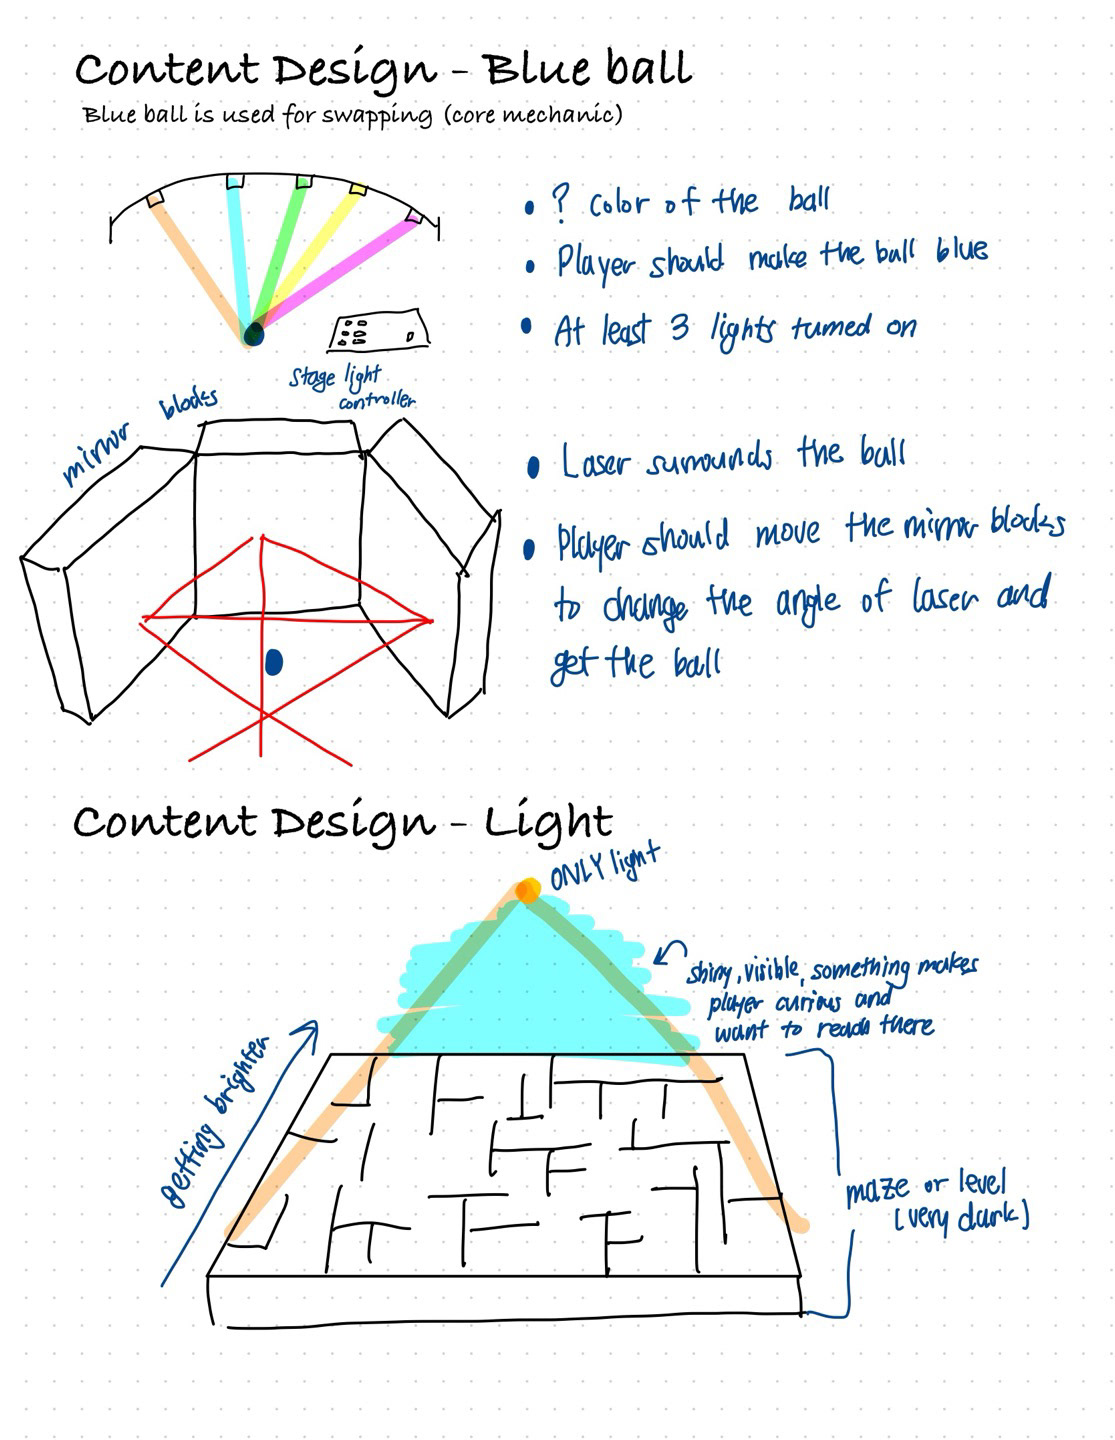 Content Design - Blue ball
Blue ball is used for swapping (core mechanic)
• ? color of the ball
• Player should make the ball blue
• At least 3 lights turned on
Stage light
controller
mirror blocks
• Laser surrounds the ball
• Player should move the mirror blocks
to change the angle of laser and
get the ball
Content Design - Light
ONLY light
shiny, visible, something makes
player curious and
want to reach there
getting brighter
maze or level
(very dark)